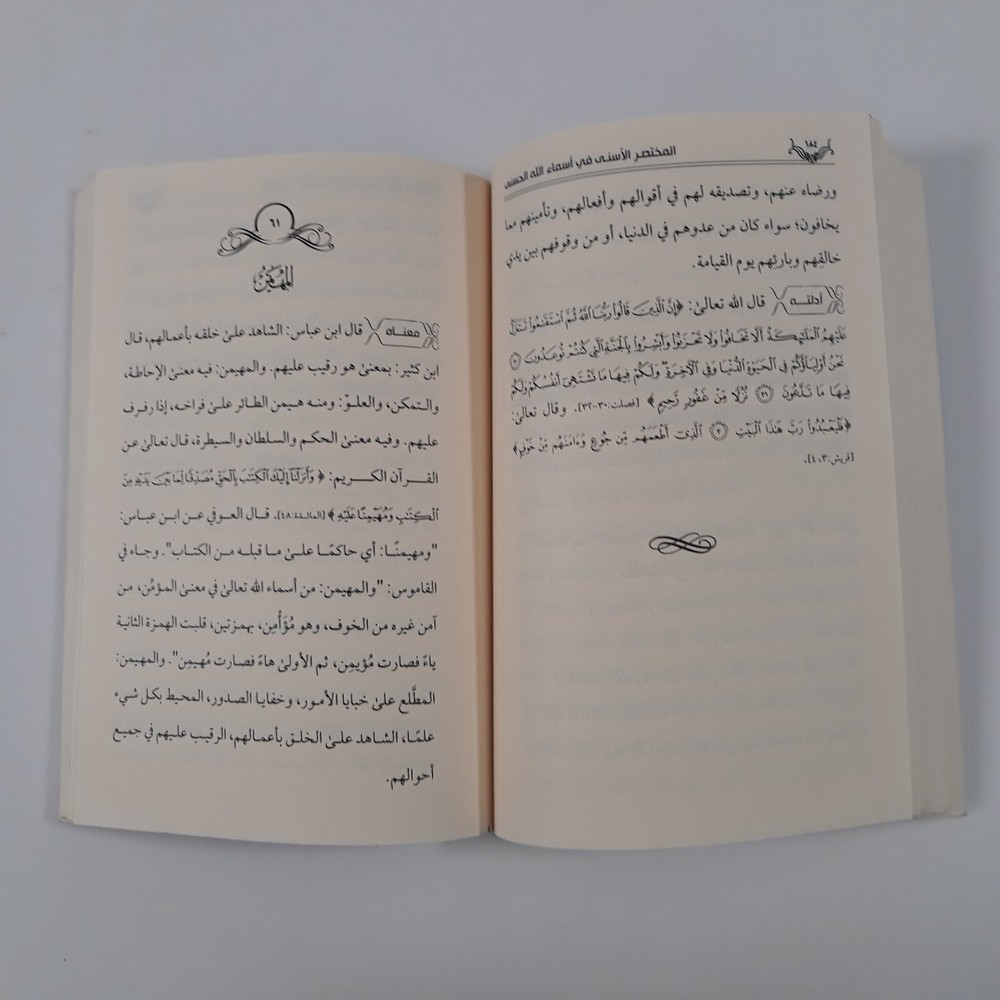 ١٨٤
المختصر الأسنى في أسماء الله الحسنى
ورضاه عنهم، وتصديقه لهم في أقوالهم وأفعالهم، وتأمينهم مما
يخافون؛ سواء كان من عدوهم في الدنيا، أو من وقوفهم بين يدي
خالقِهم وبارئِهم يوم القيامة.
أدلته قال الله تعالى: ﴿إِنَّ الَّذِينَ قَالُوا رَبُّنَا اللَّهُ ثُمَّ اسْتَقَامُوا تَتَنَزَّلُ
عَلَيْهِمُ الْمَلَائِكَةُ أَلَّا تَخَافُوا وَلَا تَحْزَنُوا وَأَبْشِرُوا بِالْجَنَّةِ الَّتِي كُنتُمْ تُوعَدُونَ ٣٠
نَحْنُ أَوْلِيَاؤُكُمْ فِي الْحَيَاةِ الدُّنْيَا وَفِي الْآخِرَةِ وَلَكُمْ فِيهَا مَا تَشْتَهِي أَنفُسُكُمْ وَلَكُمْ
فِيهَا مَا تَدَّعُونَ ٣١ نُزُلًا مِّنْ غَفُورٍ رَّحِيمٍ﴾ [فصلت:٣٠-٣٢]. وقال تعالى:
﴿فَلْيَعْبُدُوا رَبَّ هَٰذَا الْبَيْتِ ٣ الَّذِي أَطْعَمَهُم مِّن جُوعٍ وَءَامَنَهُم مِّنْ خَوْفٍ﴾
[قريش:٣، ٤].
٦١
المهيمن
معناه قال ابن عباس: الشاهد على خلقه بأعمالهم، قال
ابن كثير: بمعنى هو رقيب عليهم. والمهيمن: فيه معنى الإحاطة،
والتمكن، والعلوّ: ومنه هيمن الطائر على فراخه، إذا رفرف
عليهم. وفيه معنى الحكم والسلطان والسيطرة، قال تعالى عن
القرآن الكريم: ﴿وَأَنزَلْنَا إِلَيْكَ الْكِتَابَ بِالْحَقِّ مُصَدِّقًا لِّمَا بَيْنَ يَدَيْهِ مِنَ
الْكِتَابِ وَمُهَيْمِنًا عَلَيْهِ﴾ [المائدة:٤٨]. قال العوفي عن ابن عباس:
"ومهيمنًا: أي حاكمًا على ما قبله من الكتاب". وجاء في
القاموس: "والمهيمن: من أسماء الله تعالى في معنى المؤمِّن، من
آمن غيره من الخوف، وهو مُؤَأْمِن، بهمزتين، قلبت الهمزة الثانية
ياءً فصارت مُؤيمِن، ثم الأولى هاءً فصارت مُهيمِن". والمهيمن:
المطَّلع على خبايا الأمور، وخفايا الصدور، المحيط بكل شيء
علمًا، الشاهد على الخلق بأعمالهم، الرقيب عليهم في جميع
أحوالهم.